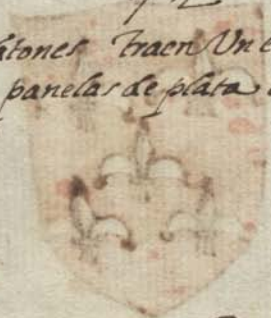 atones traen Un e
panelas de plata